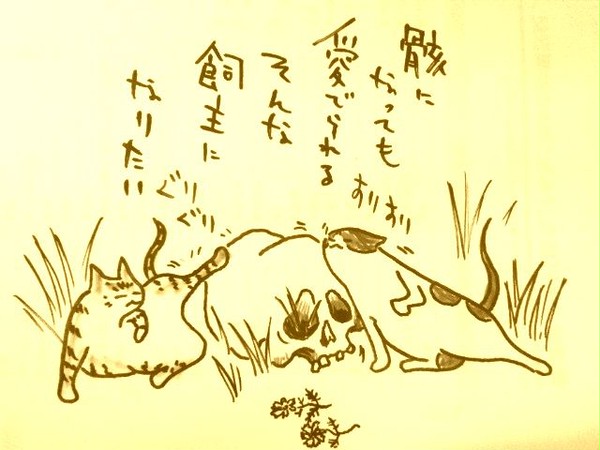 骸に
なっても
愛でられる
そんな
飼主に
なりたい
すりすり
ぐりぐり